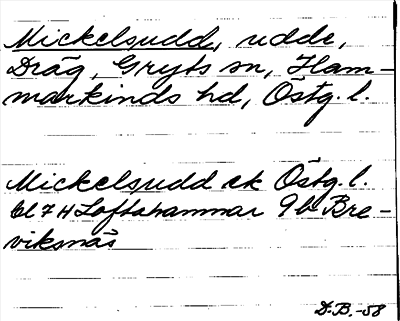 Mickelsudd, udde,
Dräg, Gryts sn, Ham-
markinds hd, Östg. l.
Mickelsudd ek Östg. l.
bl 7 H Loftahammar 9b Bre-
viksnäs
D.B.-58